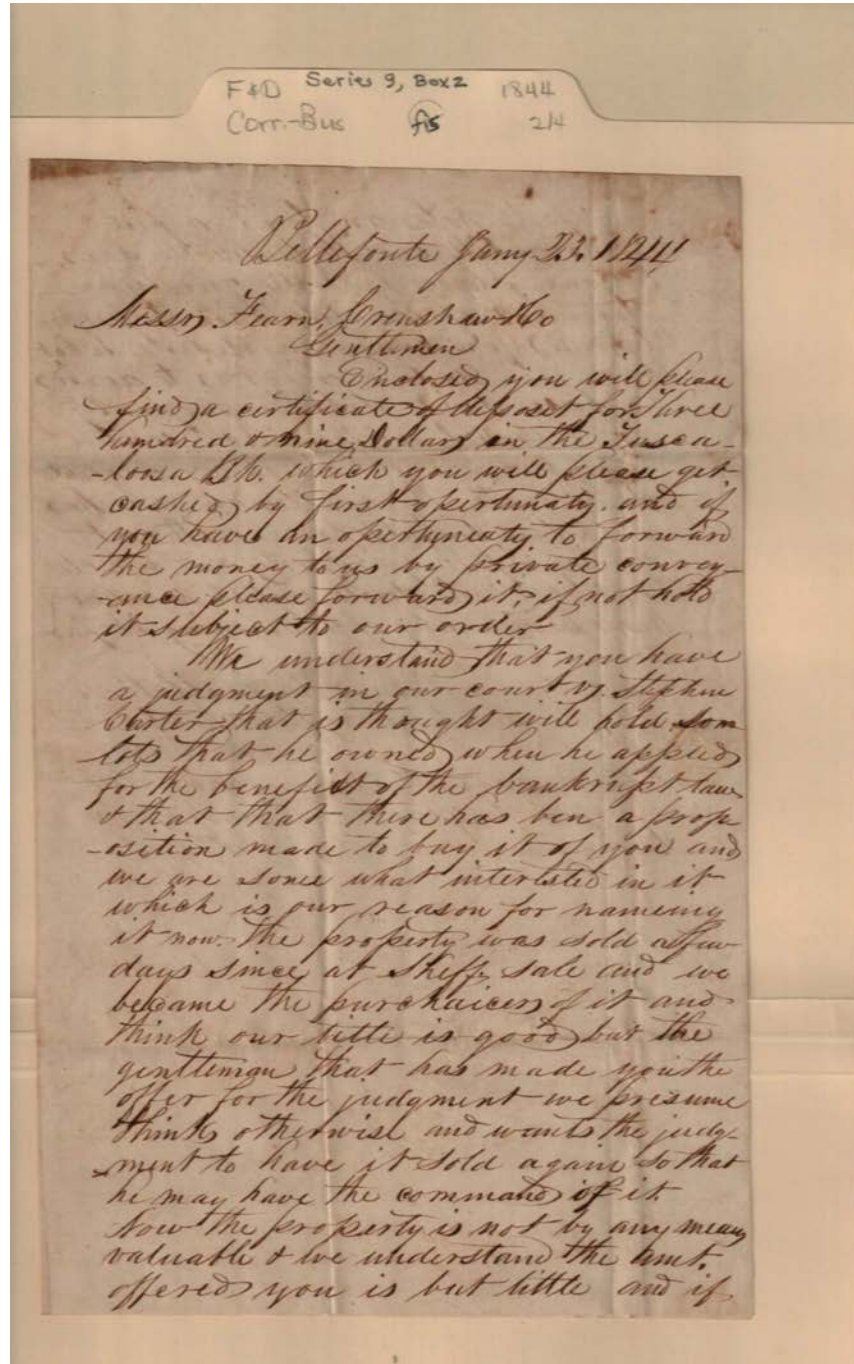 F&D Series 9, Box 2 1844
Corr.-Bus f15 2/4
Bellefonte Jany 22. 1844
Messrs Fearn, Crenshaw & Co
Gentlemen
Enclosed you will please
find a certificate of deposet for Three
hundred & nine Dollars in the Tusca-
-loosa Bk. which you will please get
cashed by first opertunaty. and if
you have an opertuneaty to forward
the money to us by private convey-
-ance please forward it, if not hold
it subject to our order
We understand that you have
a judgment in our court vs. Stephen
Carter that is thought will hold som
lots that he owned when he applied
for the benefist of the bankrupt law
& that that there has ben a prop
-osition made to buy it of you and
we are some what intersted in it
which is our reason for nameing
it now. The property was sold a few
days since at Sheffs sale and we
became the purchaicers of it and
think our title is good but the
gentleman that has made you the
offer for the judgment we presume
thinks otherwise and wants the judg-
-ment to have it sold again so that
he may have the command of it.
Now the property is not by any means
valuable & we understand the amt.
offered you is but little and if